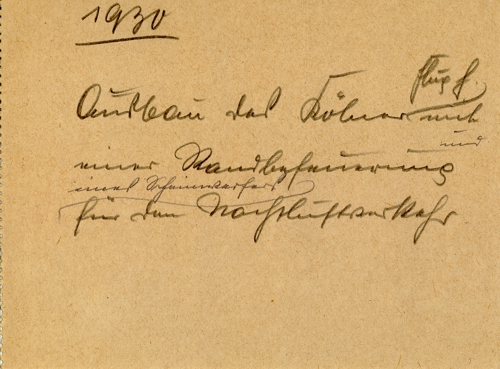 1930
Flugh.
Ausbau des Kölner mit
und
einer Randbefeuerung
eines Scheinwerfers
für den Nachtluftverkehr